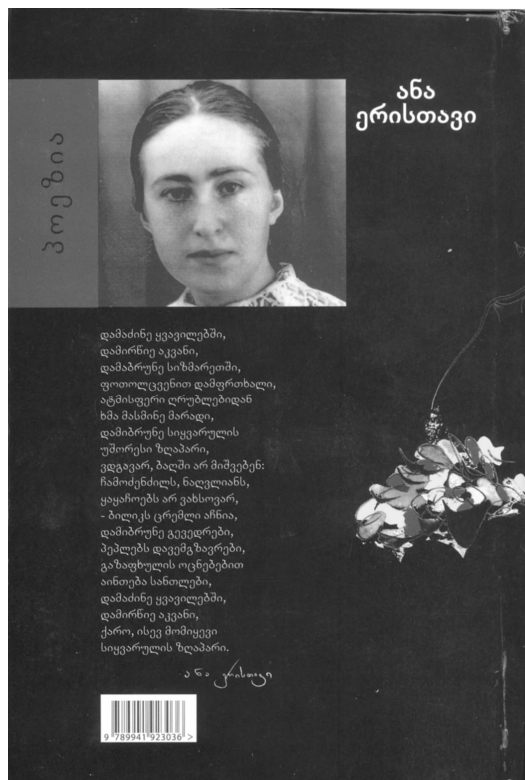 ანა
ერისთავი
პოეზია
დამაძინე ყვავილებში,
დამირწიე აკვანი,
დამაბრუნე სიზმარეთში,
ფოთოლცვენით დამფრთხალი,
ატმისფერი ღრუბლებიდან
ხმა მასმინე მარადი,
დამიბრუნე სიყვარულის
უშორესი ზღაპარი,
ვდგავარ, ბაღში არ მიშვებენ:
ჩამოძენძილს, ნაღვლიანს,
ყაყაჩოებს არ ვახსოვარ,
- ბილიკს ცრემლი აჩნია,
დამიბრუნე გევედრები,
პეპლებს დავემგზავრები,
გაზაფხულის ოცნებებით
აინთება სანთლები,
დამაძინე ყვავილებში,
დამირწიე აკვანი,
ქარო, ისევ მომიყევი
სიყვარულის ზღაპარი.
ანა ერისთავი
9 789941 923036 >